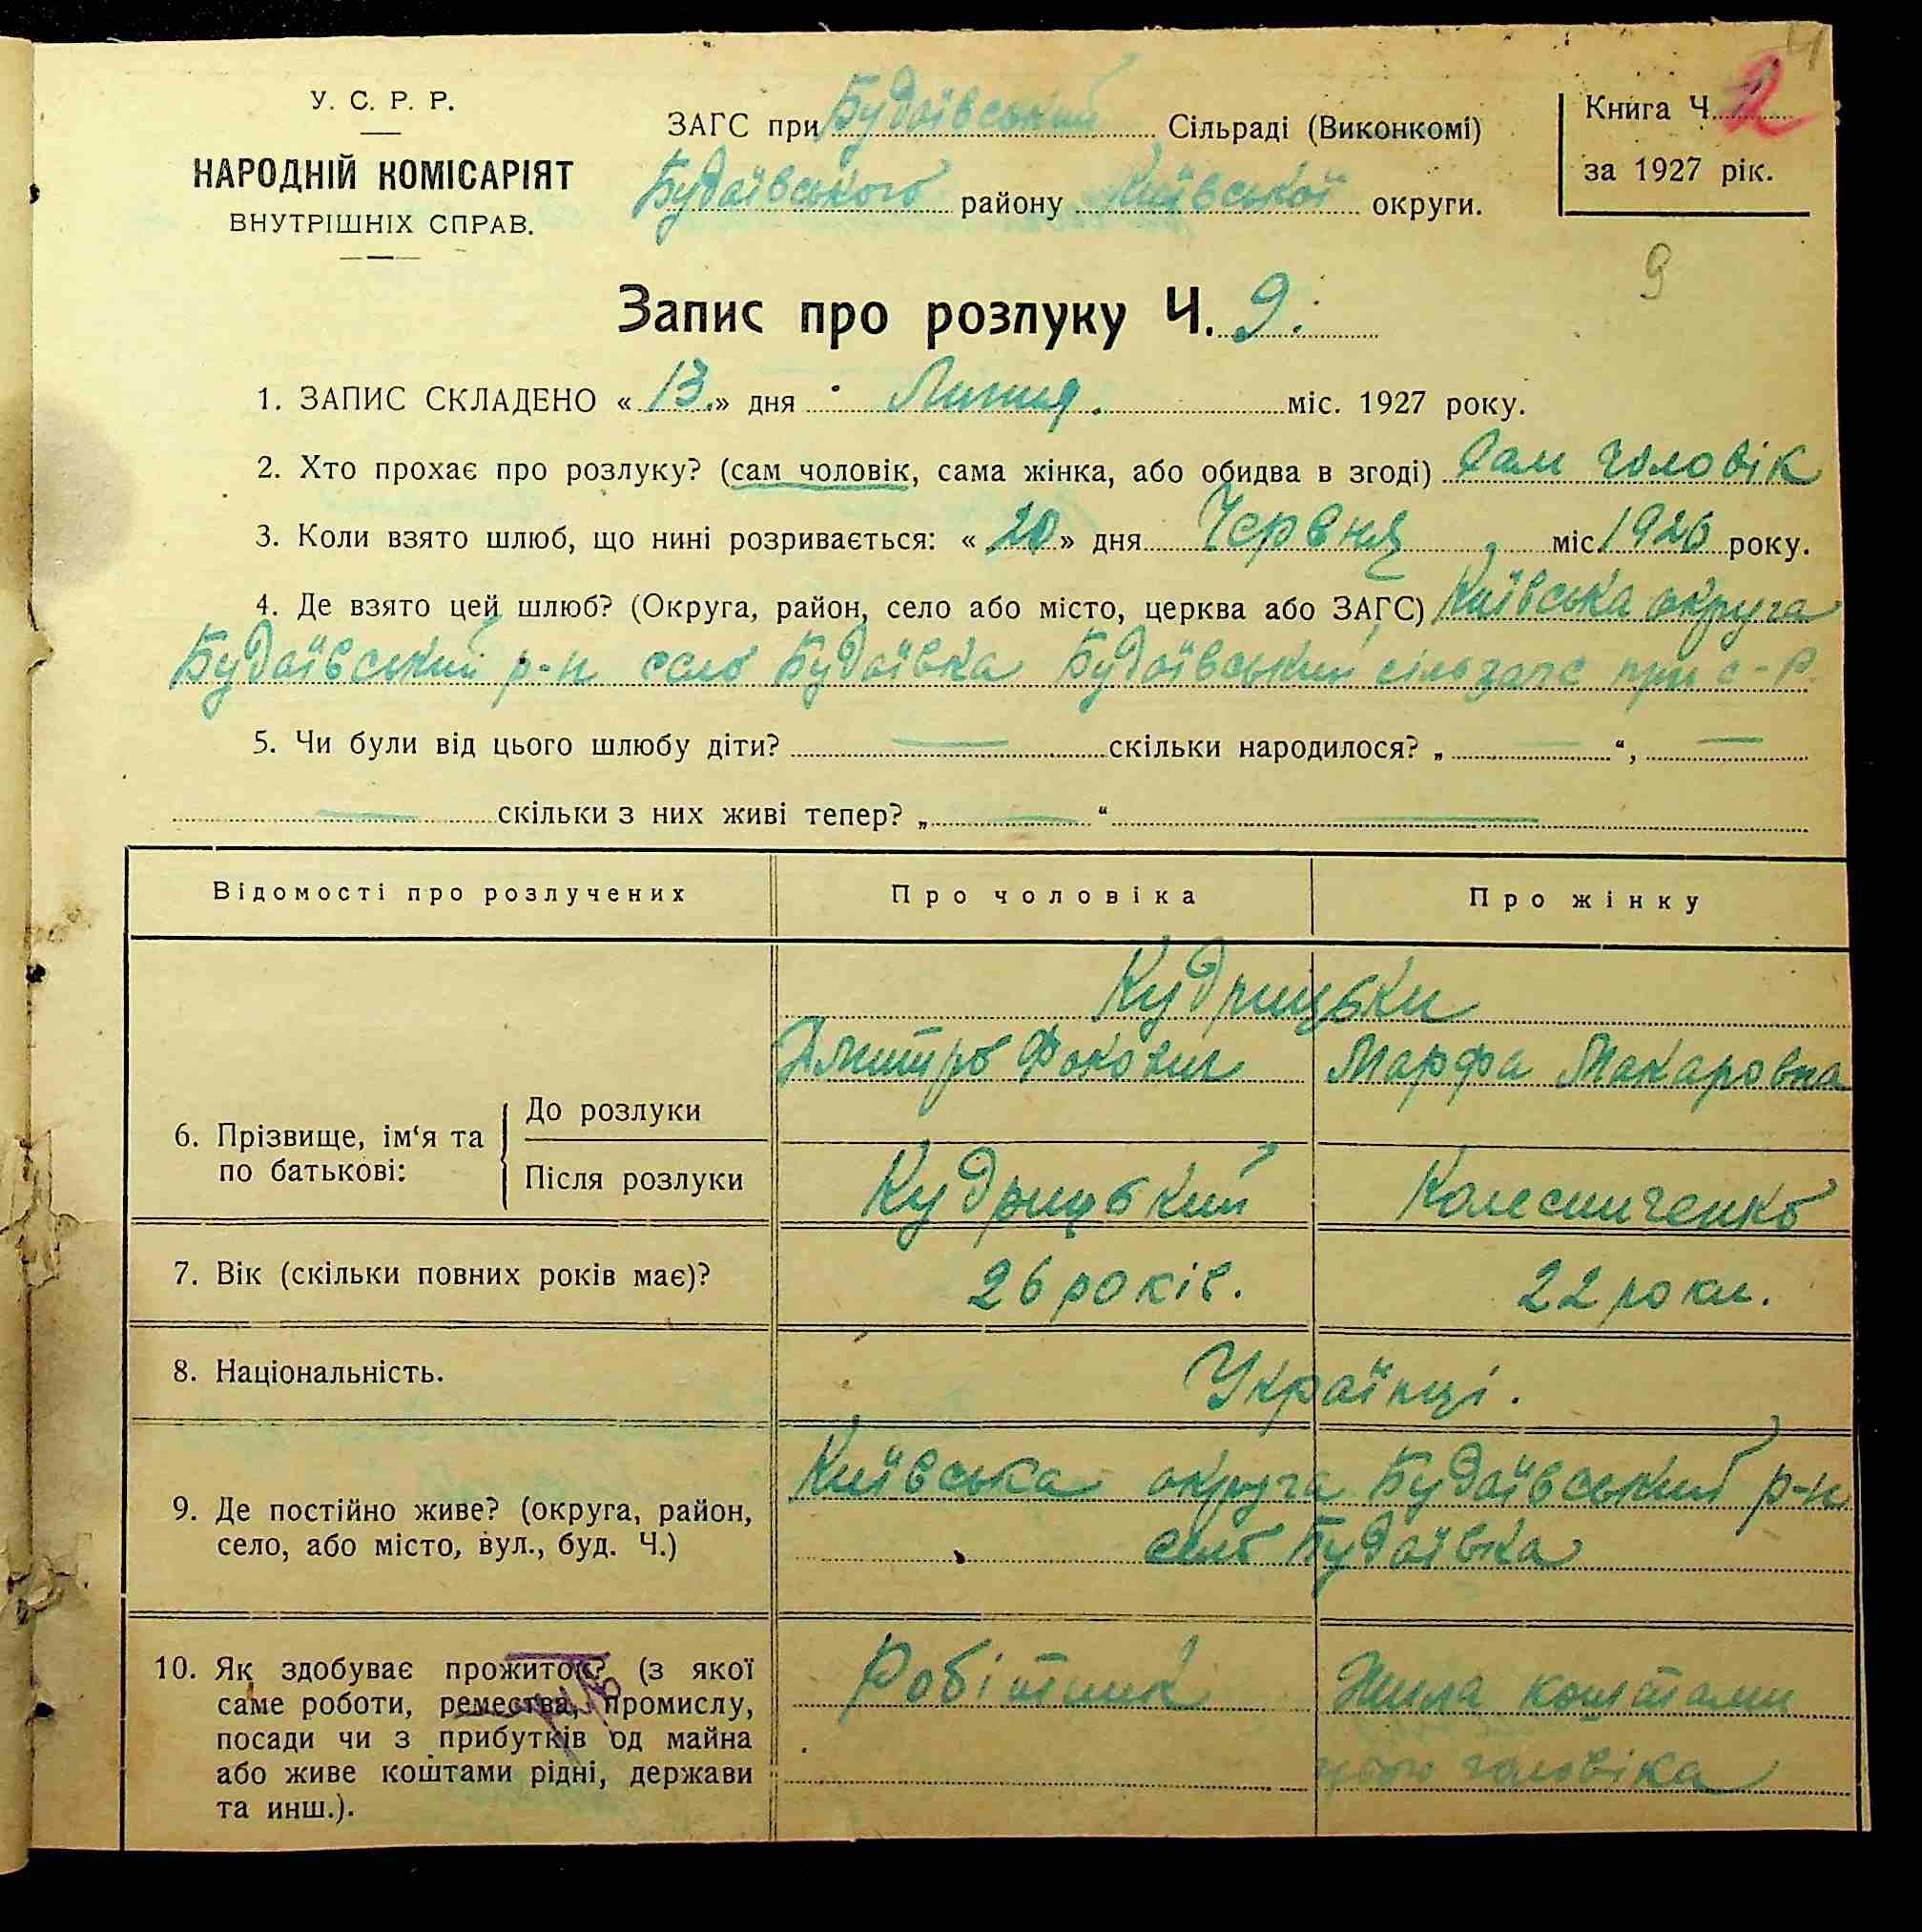 У. С. Р. Р.
НАРОДНІЙ КОМІСАРІЯТ
ВНУТРІШНІХ СПРАВ.
ЗАГС при Будаївський Сільраді (Виконкомі)
Будаївського району Київської округи.
Книга Ч. 2
за 1927 рік.
9
Запис про розлуку Ч. 9.
1. ЗАПИС СКЛАДЕНО « 13. » дня Липня. міс. 1927 року.
2. Хто прохає про розлуку? (сам чоловік, сама жінка, або обидва в згоді) Сам чоловік
3. Коли взято шлюб, що нині розривається: « 20 » дня Червня міс. 1926 року.
4. Де взято цей шлюб? (Округа, район, село або місто, церква або ЗАГС) Київська округа
Будаївський р-н село Будаївка Будаївський сільзагс при с-р.
5. Чи були від цього шлюбу діти? — скільки народилося? „ — “, —
— скільки з них живі тепер? „ — “ —
Відомості про розлучених Про чоловіка Про жінку
Кудрицьки
Дмитро Фокович Марфа Макаровна
6. Прізвище, ім‘я та по батькові: До розлуки
Після розлуки Кудрицький Колесниченко
7. Вік (скільки повних років має)? 26 років. 22 роки.
8. Національність. Українці.
9. Де постійно живе? (округа, район, Київська округа Будаївський р-н
село, або місто, вул., буд. Ч.) село Будаївка
10. Як здобуває прожиток? (з якої Робітник Жила коштами
саме роботи, ремества, промислу,
посади чи з прибутків од майна
або живе коштами рідні, держави чоловіка
та инш.).